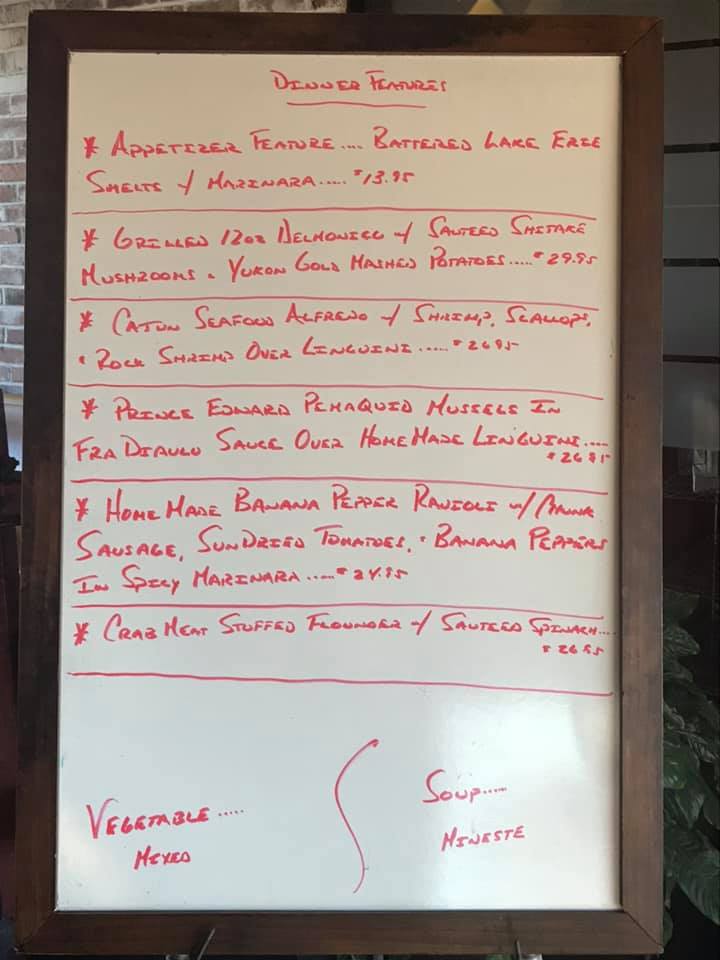 DINNER FEATURES
* APPETIZER FEATURE.... BATTERED LAKE ERIE
SMELTS w/ MARINARA..... $13.95
* GRILLED 12oz DELMONICO w/ SAUTEED SHITAKE
MUSHROOMS & YUKON GOLD MASHED POTATOES..... $29.95
* CAJUN SEAFOOD ALFREDO w/ SHRIMP, SCALLOPS,
& ROCK SHRIMP OVER LINGUINI..... $26.95
* PRINCE EDWARD PEMAQUID MUSSELS IN
FRA DIAVLO SAUCE OVER HOMEMADE LINGUINI....
$26.95
* HOMEMADE BANANA PEPPER RAVIOLI w/
SAUSAGE, SUNDRIED TOMATOES, & BANANA PEPPERS
IN SPICY MARINARA..... $24.95
* CRAB MEAT STUFFED FLOUNDER w/ SAUTEED SPINACH....
$26.95
VEGETABLE.....
MIXED
SOUP.....
MINESTE